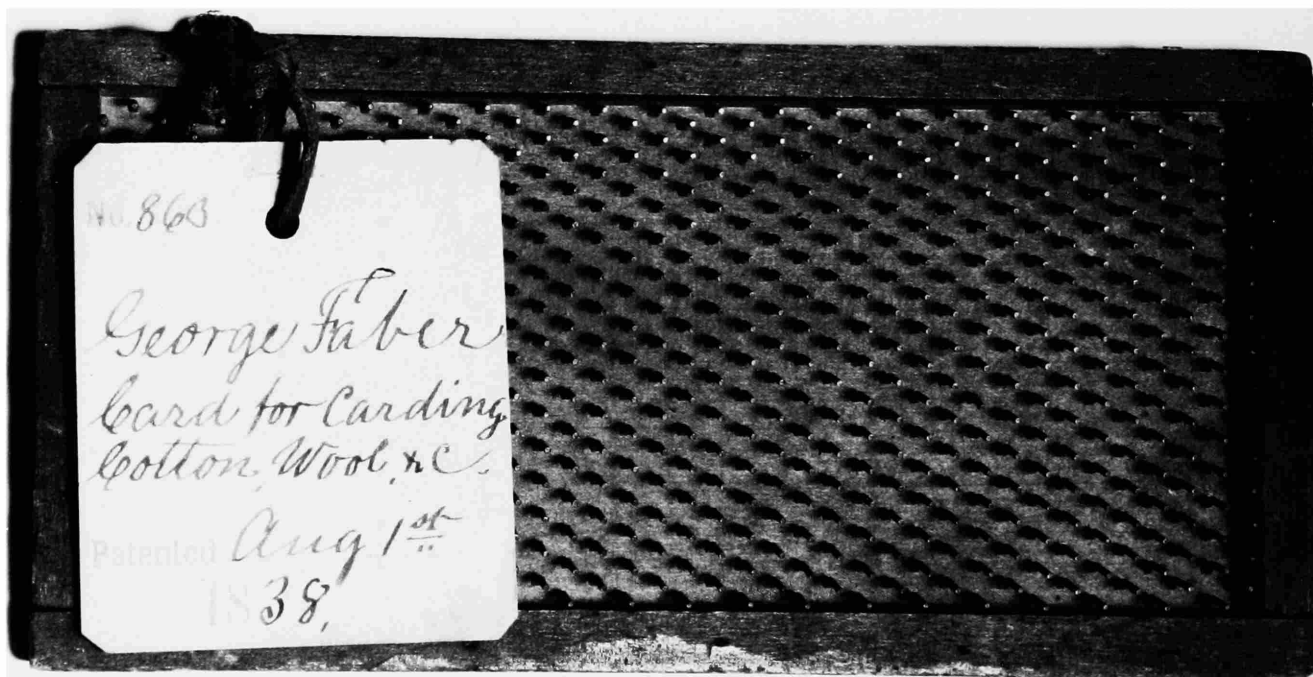 No. 863
George Faber
Card for Carding
Cotton, Wool, &c.
Patented Aug 1st
1838,